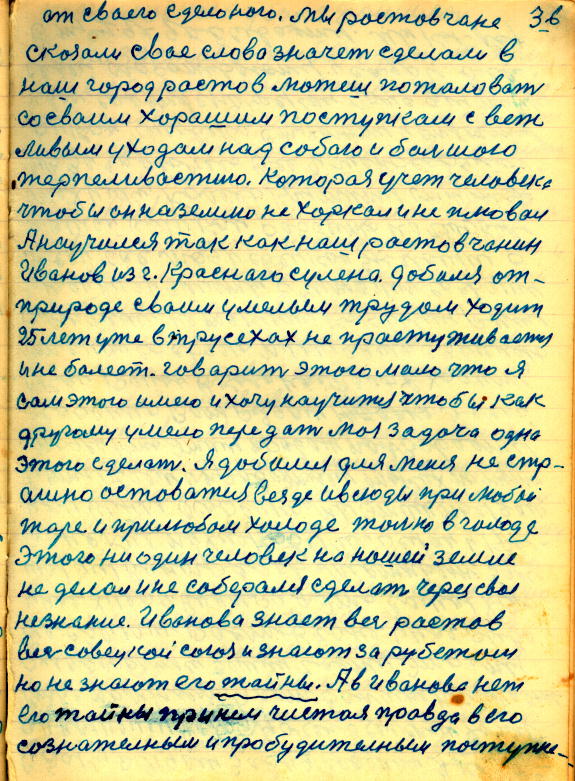 от сваего сделоного. Мы ростовчане 36
сказали свое слова значет сделали в
наш город растов можеш пожаловат
со сваим харашим поступкам с веж
ливым уходам над собаю и болшою
терпеливастию. Которая учет человека
чтобы он на землю не харкал и не плювал
А научился так как наш растовчанин
Иванов из г. Краснаго сулена. Добился от-
природе сваим умелым трудом ходит
25 лет уже в трусехах не праступживается
и не балеет. говарит этого мало что я
сам этого имею и хочу научится чтобы как
другому умело передат моя задача одна
этого сделат. Я добился для меня не стр-
ашно остоватся везде и всюды при любой
жаре и прилюбом холоде толко в голоде
Этого ни один человек на нашей земле
не делал и не соберался сделат через свое
незнание. Иванова знает вся растов
вся совецкой союз и знают за рубежом
но не знают его тайны. А в Иванова нет
его тайны при нем чистая правда в его
сознателным и пробудителным поступке-